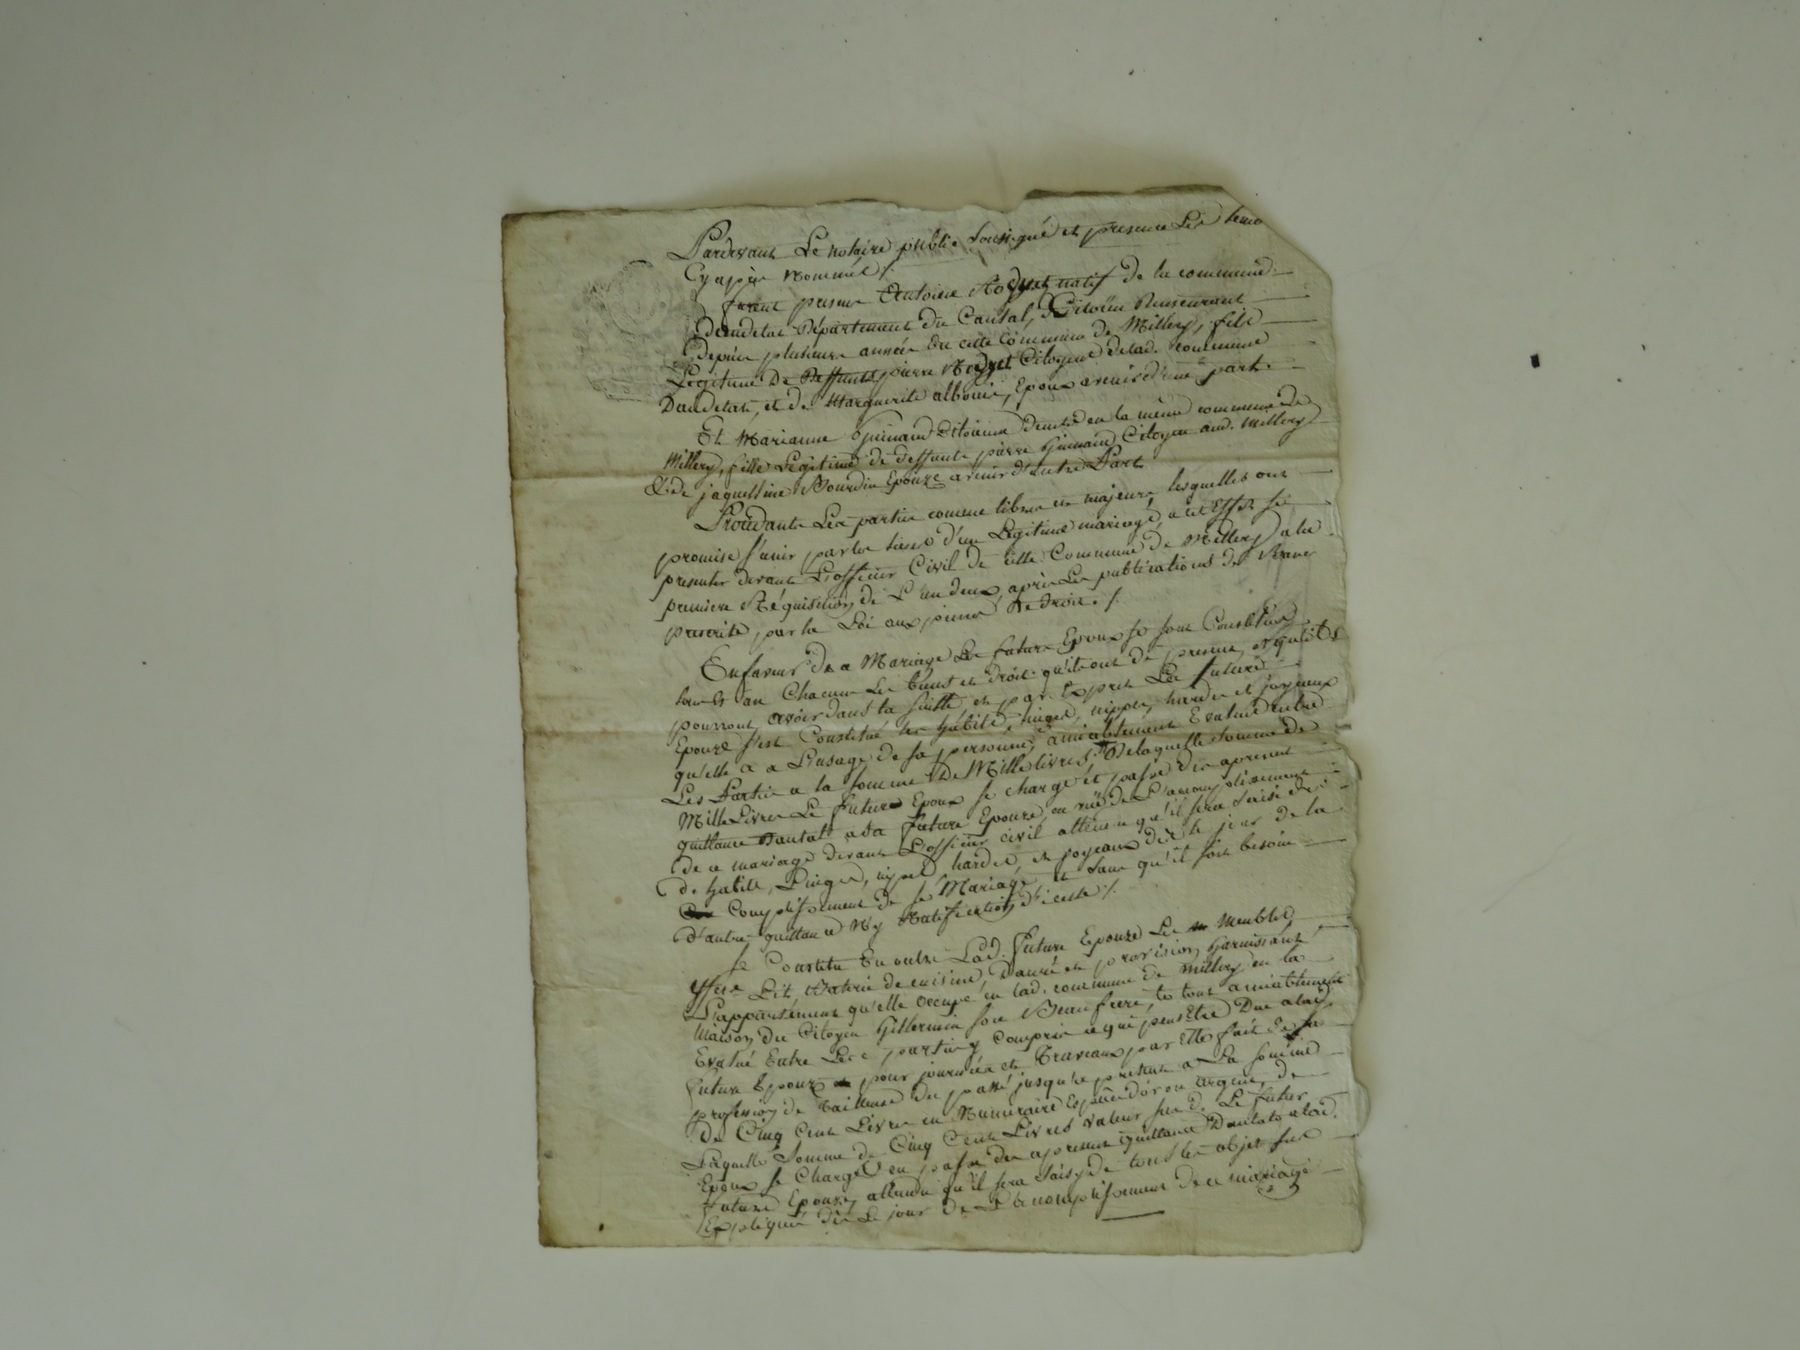 Pardevant Le notaire public Soussigné et presence Les temo
Cy après Nommés /.
furent presens Antoine natif de la commune
Département du Cantal, Citoïen Demeurant
Depuis plusieurs années En cette Commune de Millery, fils
Légitime De Deffunt pierre Citoyen delad. commune
et de Marguerite albouis, Epoux avenir d'une part.
Et Marianne Guinand Citoienne demte en la même commune de
Millery, fille Légitime de deffunts pierre Guinand Citoyen aud. Millery
& de jaquelline Bourdin Epouze avenir d'autre Part
Procédants Les parties comme libres et majeures lesquelles ont
promise s'unir par les liens d'un Légitime mariage, a cet Effet se
presenter devant L'officier Civil de cette Commune de Millery a la
premiere Réquisition de L'un deux, après Les publications de Bans
prescrite, par la Loi aux peines De droit. /.
En faveur de ce Mariage Les futurs Epoux se sont Constitués
tous & un Chacuns Les biens et droits qu'ils ont de present, et qu'ils
pourront avoir dans la suitte, et par Exprès La future
Epouze s'est Constitué ses habits, linges, nippes, hardes et joyeaux
qu'elle a a L'usage de sa personne, amiablement Evalués entre
Les Parties a la somme de Mille livres, De laquelle Somme de
Mille Livres Le futur Epoux se charge et passe des apresent
quittance Dautat a sa future Epouze, en vüe de L'accomplissement
de ce mariage devant L'officier civil attendu qu'il sera Saisi des
d. habits, Linges, nipes, hardes, et joyeaux dès le jour de la
Complissement de se Mariage et sans qu'il soit besoin
d'autre quittance Ny Ratification d'icelle /.
Se Constitu En outre Lad. future Epouze Les Meubles,
Lit, Baterie de cuisine, danrée et provision Garnissant
L'appartement qu'elle occupe en lad. commune de Millery en la
Maison du Citoyen Gillermin son Beaufrere, le tout amiablement
Evalué Entre Les parties y compris ce qui peut Etre Due a lad.
future Epouze pour journées et Traveaux par Elle fait de sa
profession de Tailleuse du passé jusqu'a present a La somme
de Cinq Cent Livres en Numéraire Espèce d'or ou argent, de
Laquelle Somme de Cinq Cent Livres valeur sus d. Le futur
Epoux se Charge en passe des apresent quittance Dautat a lad.
future Epouze, attendu qu'il sera Saisy de tous les objet sus
Expliqués dès Le jour de L'accomplissement de ce mariage